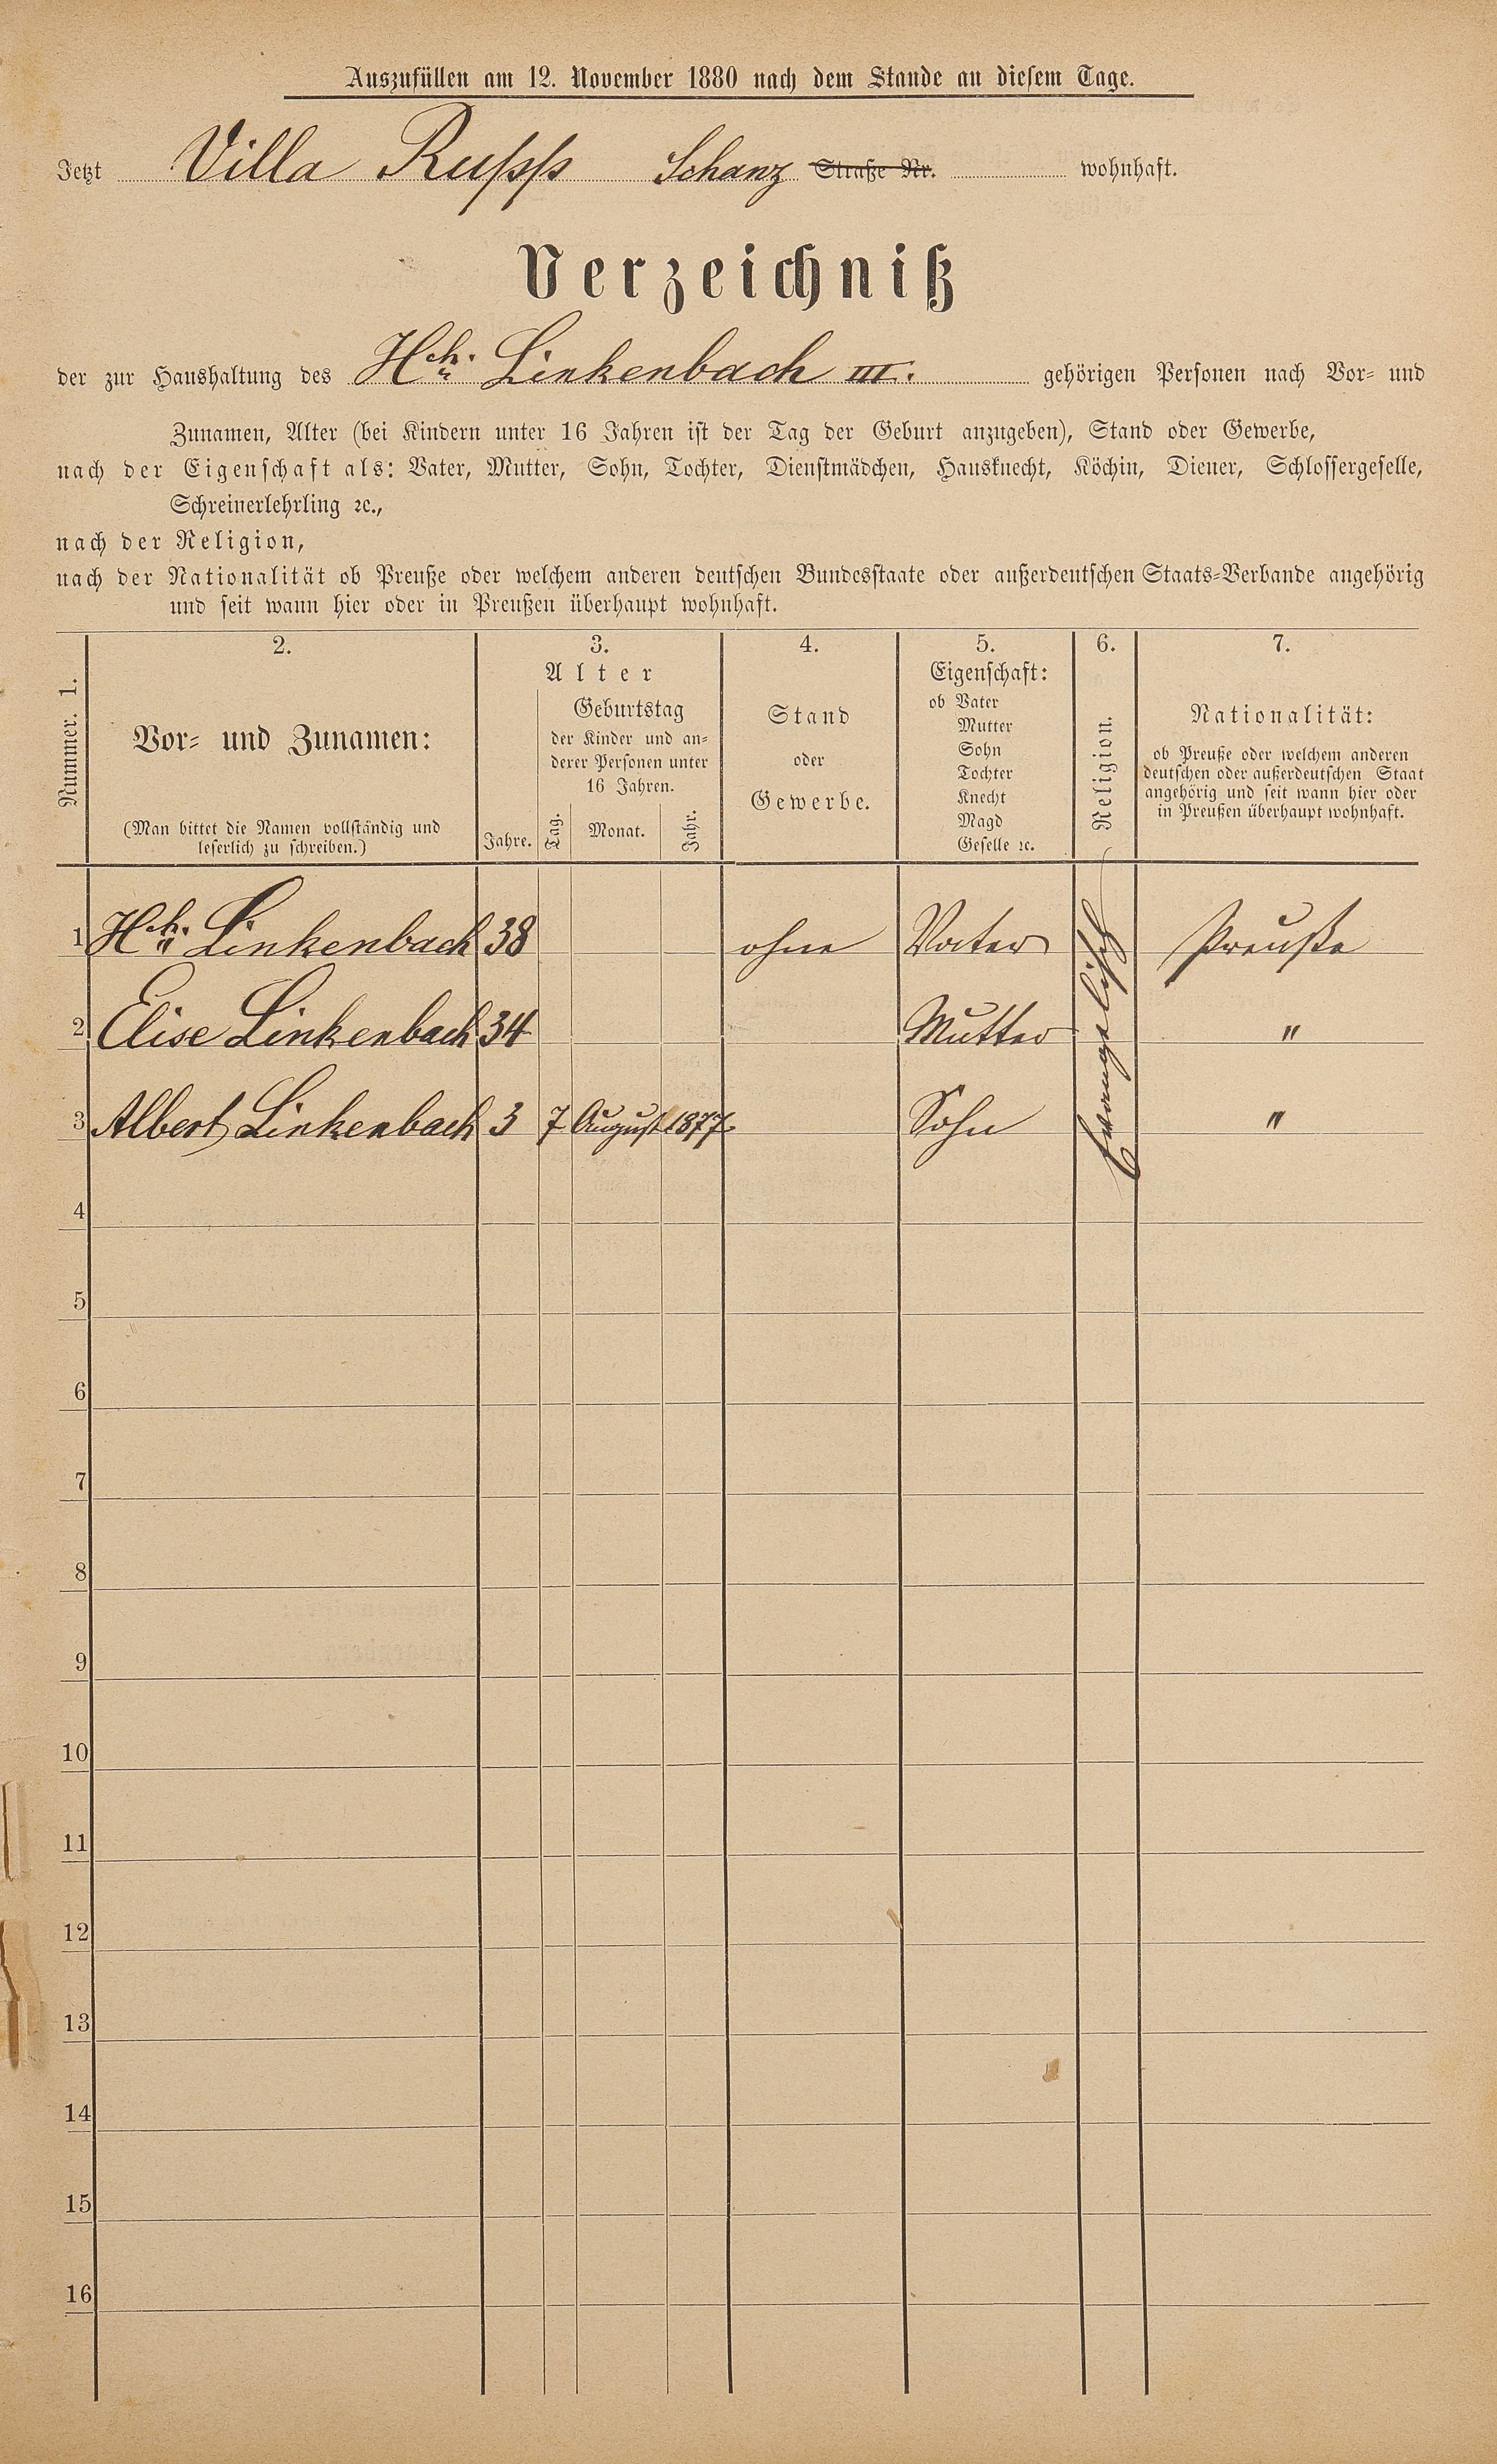 Auszufüllen am 12. November 1880 nach dem Stande an diesem Tage.
Jetzt Villa Rupp Schanz Straße Nr. wohnhaft.
Verzeichniß
der zur Haushaltung des Hch. Linkenbach III. gehörigen Personen nach Vor- und
Zunamen, Alter (bei Kindern unter 16 Jahren ist der Tag der Geburt anzugeben), Stand oder Gewerbe,
nach der Eigenschaft als: Vater, Mutter, Sohn, Tochter, Dienstmädchen, Hausknecht, Köchin, Diener, Schlossergeselle,
Schreinerlehrling ꝛc.,
nach der Religion,
nach der Nationalität ob Preuße oder welchem anderen deutschen Bundesstaate oder außerdeutschen Staats-Verbande angehörig
und seit wann hier oder in Preußen überhaupt wohnhaft.
Nummer. 1.
2.
Vor- und Zunamen:
(Man bittet die Namen vollständig und
leserlich zu schreiben.)
3.
Alter
Jahre.
Geburtstag
der Kinder und an-
derer Personen unter
16 Jahren.
Tag. Monat. Jahr.
4.
Stand
oder
Gewerbe.
5.
Eigenschaft:
ob Vater
Mutter
Sohn
Tochter
Knecht
Magd
Geselle ꝛc.
6.
Religion.
7.
Nationalität:
ob Preuße oder welchem anderen
deutschen oder außerdeutschen Staat
angehörig und seit wann hier oder
in Preußen überhaupt wohnhaft.
1 Hch. Linkenbach 38 ohne Vater Evangelisch Preuße
2 Elise Linkenbach 34 Mutter "
3 Albert Linkenbach 3 7 August 1877 Sohn "
4
5
6
7
8
9
10
11
12
13
14
15
16